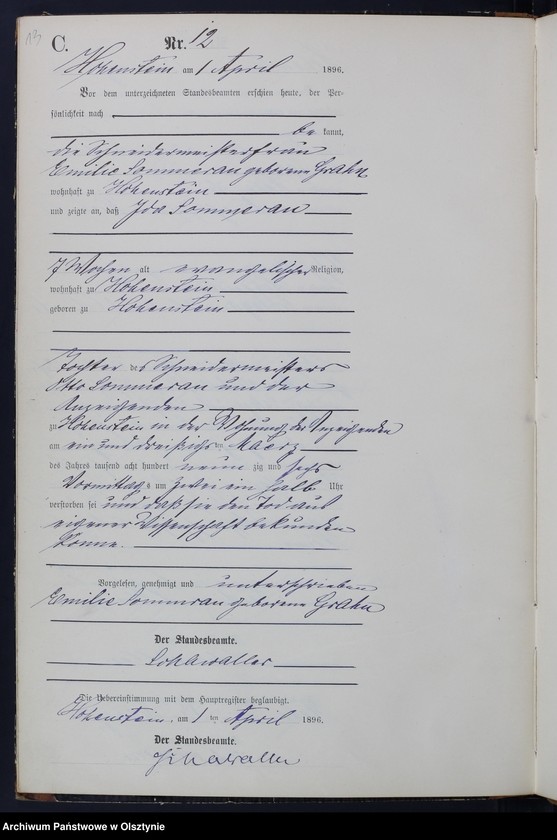 13
C.
Nr. 12
Hohenstein am 1 April 1896.
Vor dem unterzeichneten Standesbeamten erschien heute, der Per-
sönlichkeit nach
be kannt,
die Schneidermeisterfrau
Emilie Sommeran geborene Grahn
wohnhaft zu Hohenstein
und zeigte an, daß Ida Sommeran
7 Wochen alt evangelischer Religion,
wohnhaft zu Hohenstein
geboren zu Hohenstein
Tochter des Schneidermeisters
Otto Sommeran und der
Anzeigenden
zu Hohenstein in der Wohnung der Anzeigenden
am ein und dreißigsten Maerz
des Jahres tausend acht hundert neun zig und sechs
Vormittags um zwei ein halb Uhr
verstorben sei und daß sie den Tod aus
eigener Wissenschaft bekunden
könne.
Vorgelesen, genehmigt und unterschrieben
Emilie Sommeran geborene Grahn
Der Standesbeamte.
Die Uebereinstimmung mit dem Hauptregister beglaubigt.
Hohenstein, am 1 ten April 1896.
Der Standesbeamte.
Archiwum Państwowe w Olsztynie